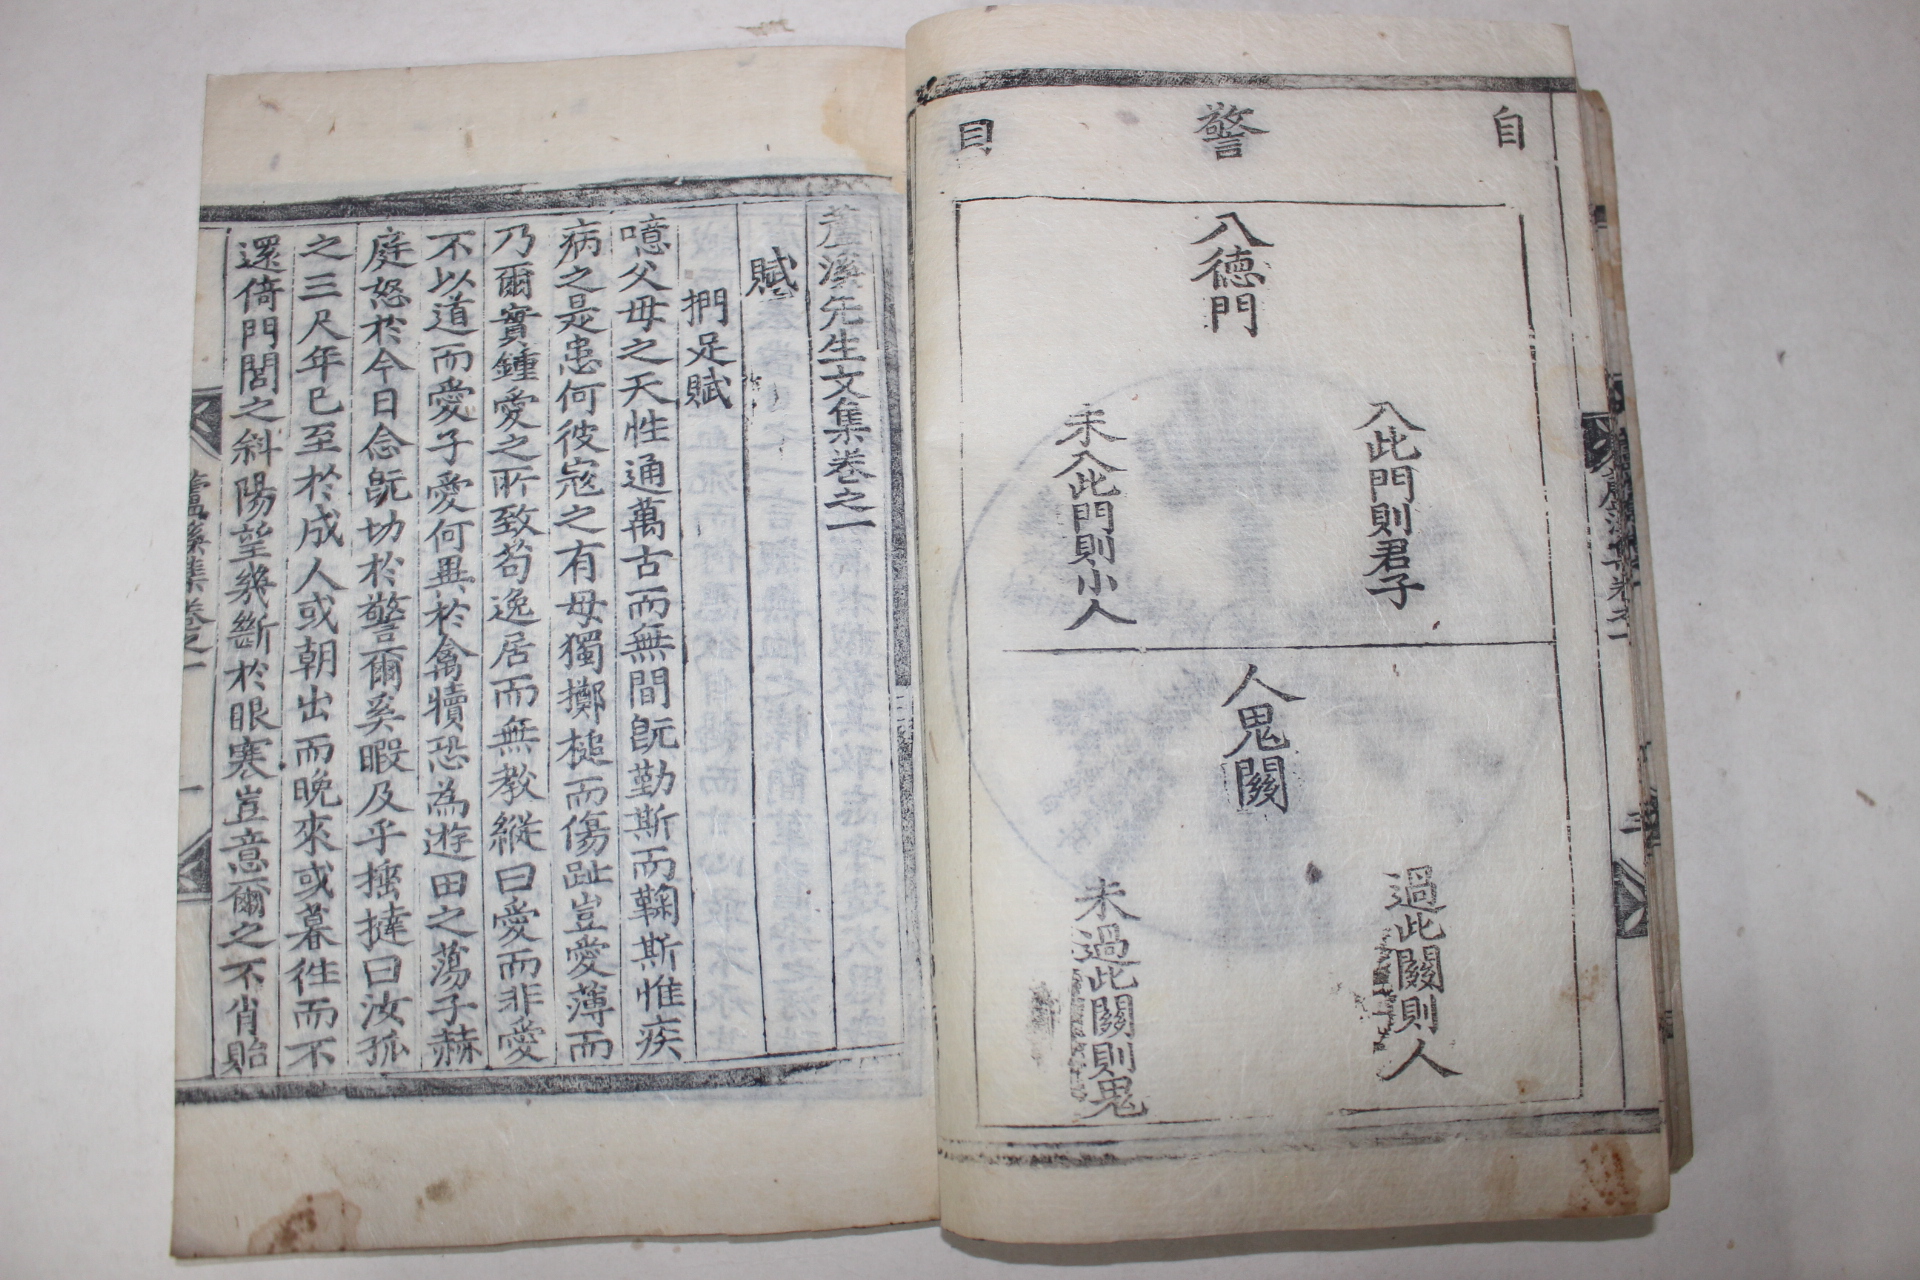 自警圖
入德門
入此門則君子
未入此門則小人
人鬼關
過此關則人
未過此關則鬼
蘆溪先生文集卷之一
賦
捫足賦
噫父母之天性通萬古而無間旣勤斯而鞠斯惟疾
病之是患何彼寇之有母獨擲槌而傷趾豈愛薄而
乃爾實鍾愛之所致苟逸居而無教縱曰愛而非愛
不以道而愛子愛何異於禽犢恐為遊田之蕩子赫
庭怒於今日念旣切於警爾奚暇及乎捶撻曰汝孤
之三尺年已至於成人或朝出而晩來或暮往而不
還倚門閭之斜陽望幾斷於眼寒豈意爾之不肖貽
蘆溪集卷之一
一